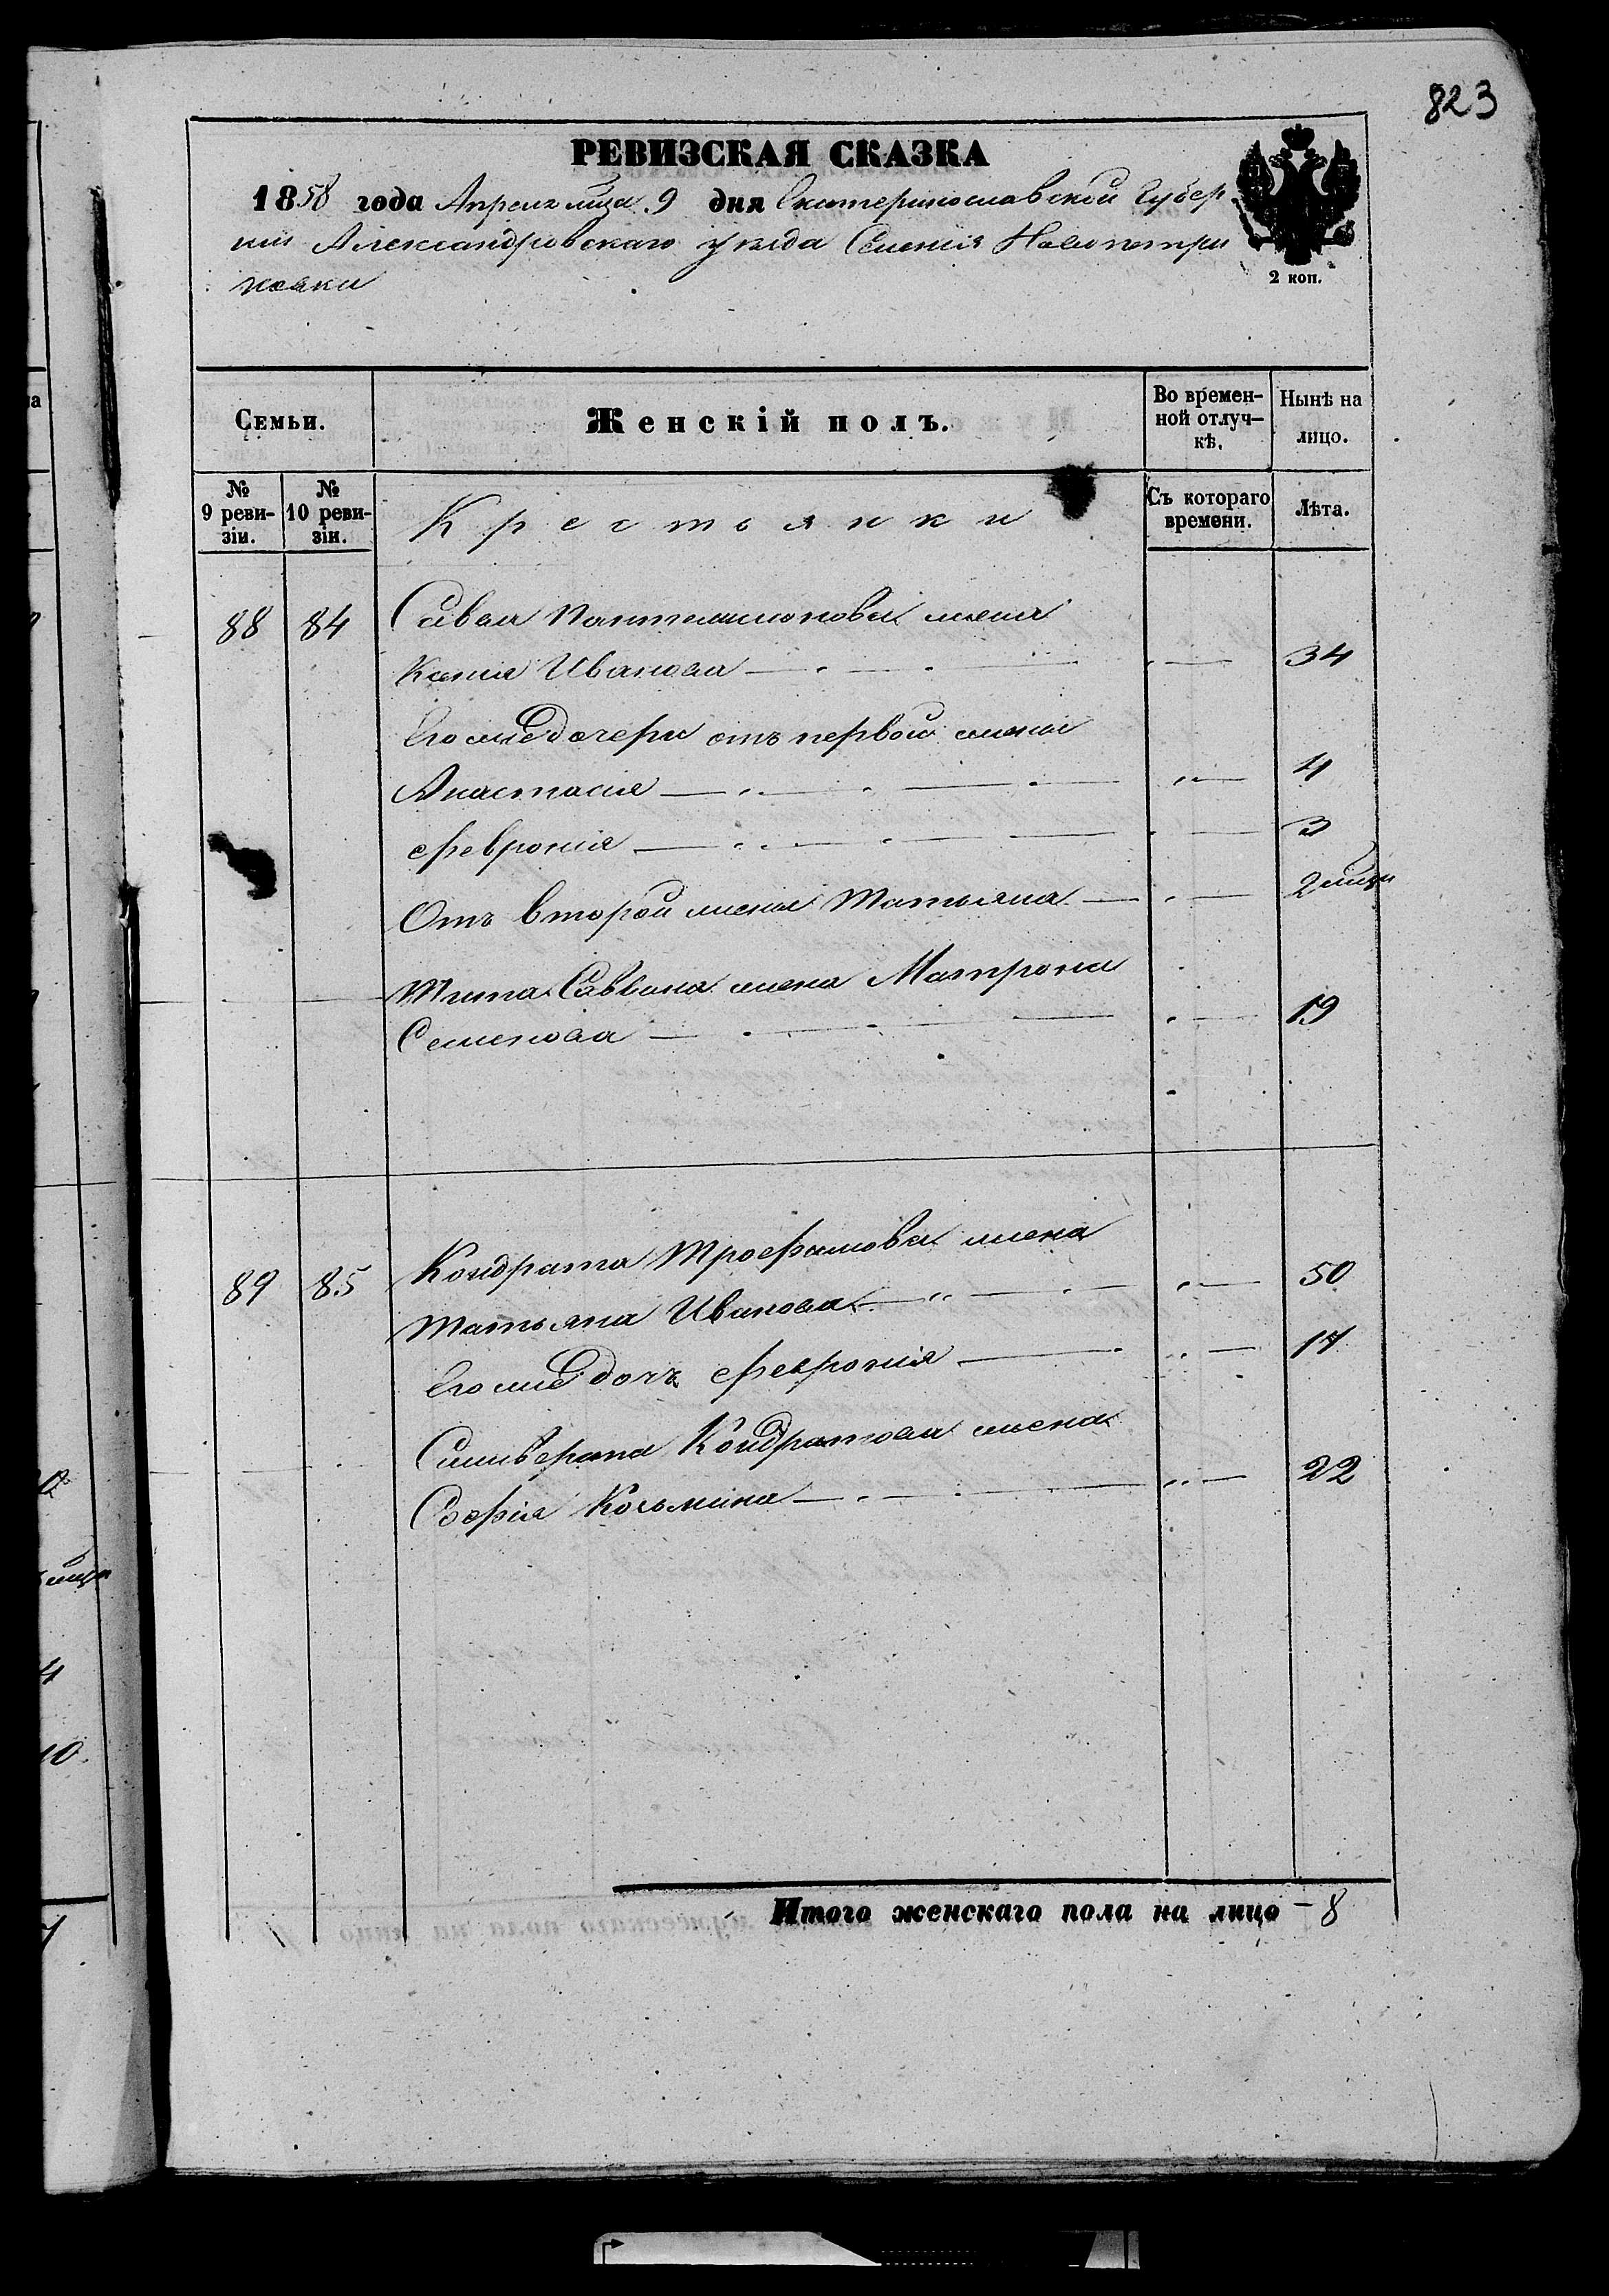 823
РЕВИЗСКАЯ СКАЗКА
1858 года Апреля мца 9 дня Екатеринославской Губер
нии Александровскаго уезда Селенія Новопетри
ковки
2 коп.
Семьи.
Женскій полъ.
Во времен-
ной отлуч-
кѣ.
Нынѣ на
лицо.
№
9 реви-
зіи.
№
10 реви-
зіи.
Крестьянки
Съ котораго
времени.
Лѣта.
88 84 Савы Пантелимонова жена
Ксенія Иванова 34
Его же дочери отъ первой жены
Анастасія 4
Февронія 3
Отъ второй жены Татьяна 2 мца
Тита Саввина жена Матрона
Семенова 19
89 85 Кондрата Трофимова жена
Татьяна Иванова 50
Его же дочь Февронія 17
Кондратова жена
Софія Козьмина 22
Итого женскаго пола на лицо 8